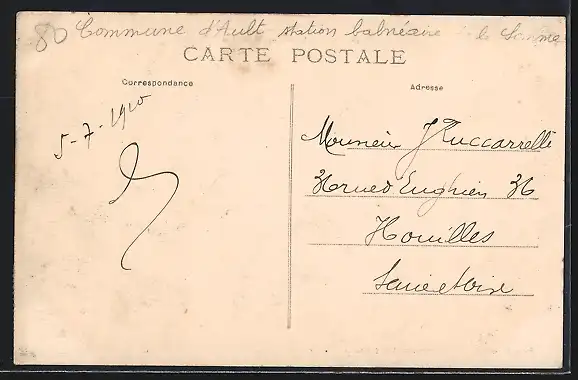 80 Commune d'Ault station balnéaire de la Somme
CARTE POSTALE
Correspondance
Adresse
5-7-1910
Monsieur J Ruccarrelli
36 rue d'Enghien 36
Houilles
Seine et Oise